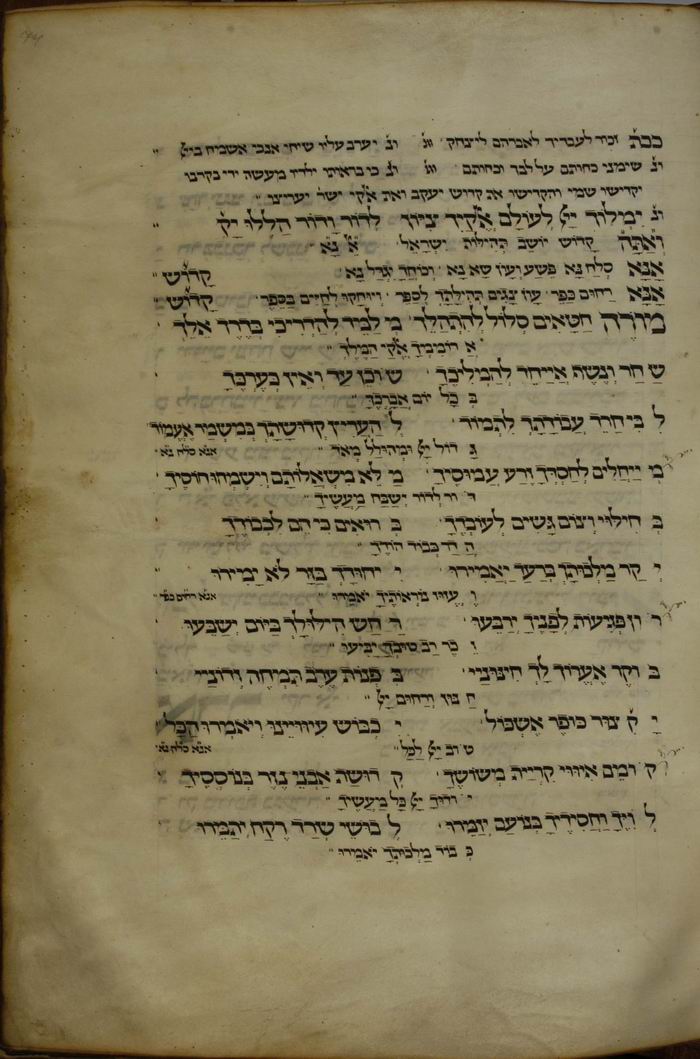 ככת׳ זכור לעבדיך לאברהם ליצחק ונ׳ ונ׳ יערב עליו שיחי אנכי אשמח ביי׳
ונ׳ שימני כחותם על לבך וכחותם ונ׳ ונ׳ כי בראותו ילדיו מעשה ידי בקרבו
יקדישו שמי והקדישו את קדוש יעקב ואת אלקי ישר׳ יעריצו
ונ׳ ימלוך יי׳ לעולם אלקיך ציון לדור ודור הללו יק׳
ואתה קדוש יושב תהילות ישראל א׳ נא
אנא סלח נא פשע ועון שא נא וכוחך יגדל נא קדוש
אנא רחום כפר עון צגים תהילתך לספר ויוחקו לחיים בספר קדוש
מורה חטאים סלול להתהלך מ לבד להדריכי בדרך אלך
א רוממיך אלקי המלך
ש חר ונשף אייחד להמליכך ש וכן עד ואין בערכך
ב כל יום אברכך
ל בי חרד עבודתך להמור ל העריץ קדושתך במשמר אעמוד
ג דול יי׳ ומהולל מאד אנא סלח נא
מ ייחלים לחסדך זרע עמוסיך מ לא משאלותם וישמחו חוסיך
ד ור לדור ישבח מעשיך
ב חילוי וצום גשים לעובדך ב רואים כי הם לכבודך
ה דר כבוד הודך
י קר מלכותך ברעד יאמירו י יחודך בזר לא ימירו
ו עזוז נוראותיך יאמרו אנא רחום כפר
ר ון פגיעות לפניך ירבעו ר חש הילולך ביום ישבעו
ז כר רב טובך יביעו
ב וקר אערוך לך חינוניי ב פנות ערב תמחה זדוניי
ח נון ורחום יי׳
י ק׳ צור כופר אשכול י כבוש עיוויינו ויאמרו הכל
ט וב יי׳ לכל אנא סלח נא
ק ומים איווי קרייה משושך ק דושה אבני נזר בנוססיך
י ודוך יי׳ כל מעשיך
ל ויך וחסידיך בנועם יזמרו ל בושי שרד רקח יתמרו
כ בוד מלכותך יאמרו